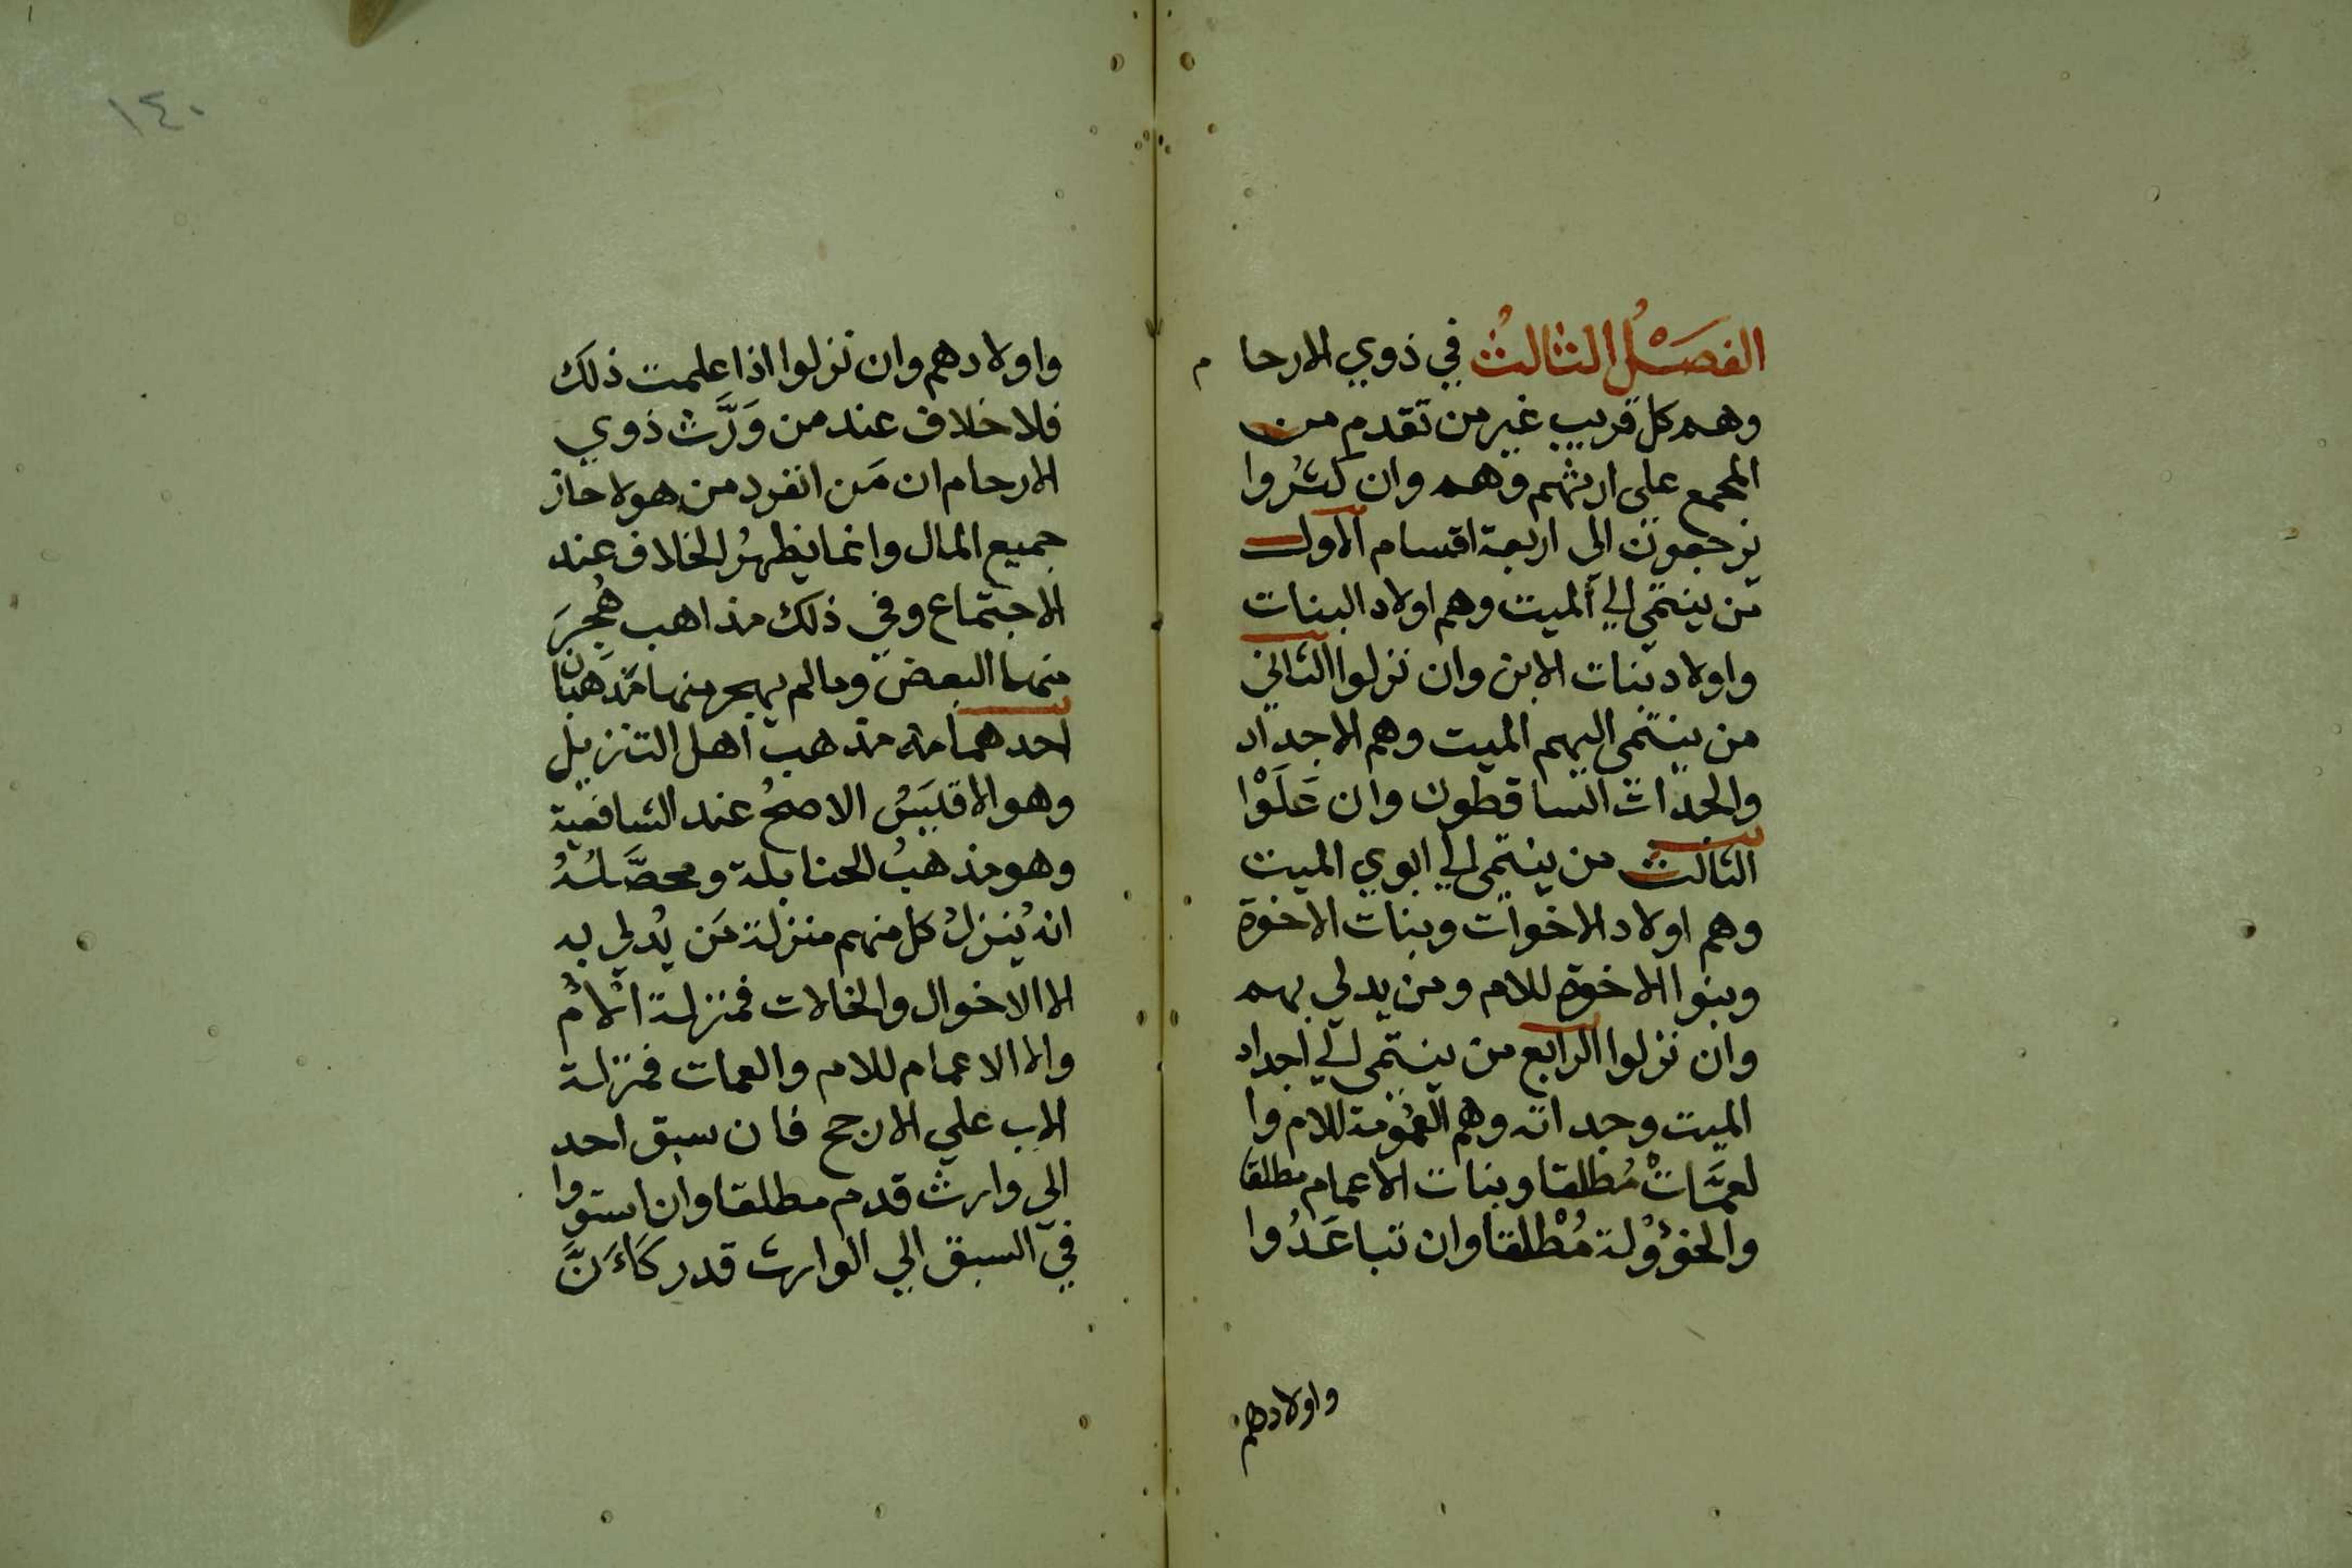 الفصل الثالث في ذوي الارحا م
وهم كل قريب غير من تقدم من
المجمع علي ارثهم وهم وان كثُروا
يرجعون الي اربعة اقسام الاول
من ينتمي الي الميت وهم اولاد البنات
واولاد بنات الابن وان نزلوا الثاني
من ينتمي اليهم الميت وهم الاجداد
والجدات الساقطون وان عَلَوْا
الثالث من ينتمي الي ابوي الميت
وهم اولاد الاخوات وبنات الاخوة
وبنوا الاخوة للام ومن يدلي بهم
وان نزلوا الرابع من ينتمي الي اجداد
الميت وجداته وهم العُمُومة للام وا
لعمَّاتْ مُطلقا وبنات الاعمام مطلقا
والخؤُولة مُطْلقا وان تباعَدُوا
واولادهم
١٤٠
واولادهم وان نزلوا اذا علمت ذلك
فلا خلاف عند من وَرَّث ذوي
الارحام ان مَن انفرد من هولا حاز
جميع المال وانما يظهرُ الخلاف عند
الاجتماع وفي ذلك مذاهب هُجِرَ
منها البعض وما لم يهجر منها مذهبان
احدهما مذهب اهل التنزيل
وهو الاقيَسُ الاصحُ عند الشافعية
وهو مذهبُ الحنابلة ومحصَّلُهُ
انه يُنزلُ كل منهم منزلة مَن يُدلي به
الا الاخوال والخالات فمنزلة الأُم
والا الاعمام للام والعمات فمنزلة
الاب علي الارجح فان سبق احد
الي وارث قدم مطلقا وان استووا
في السبق الي الوارث قدر كَاَنَّ